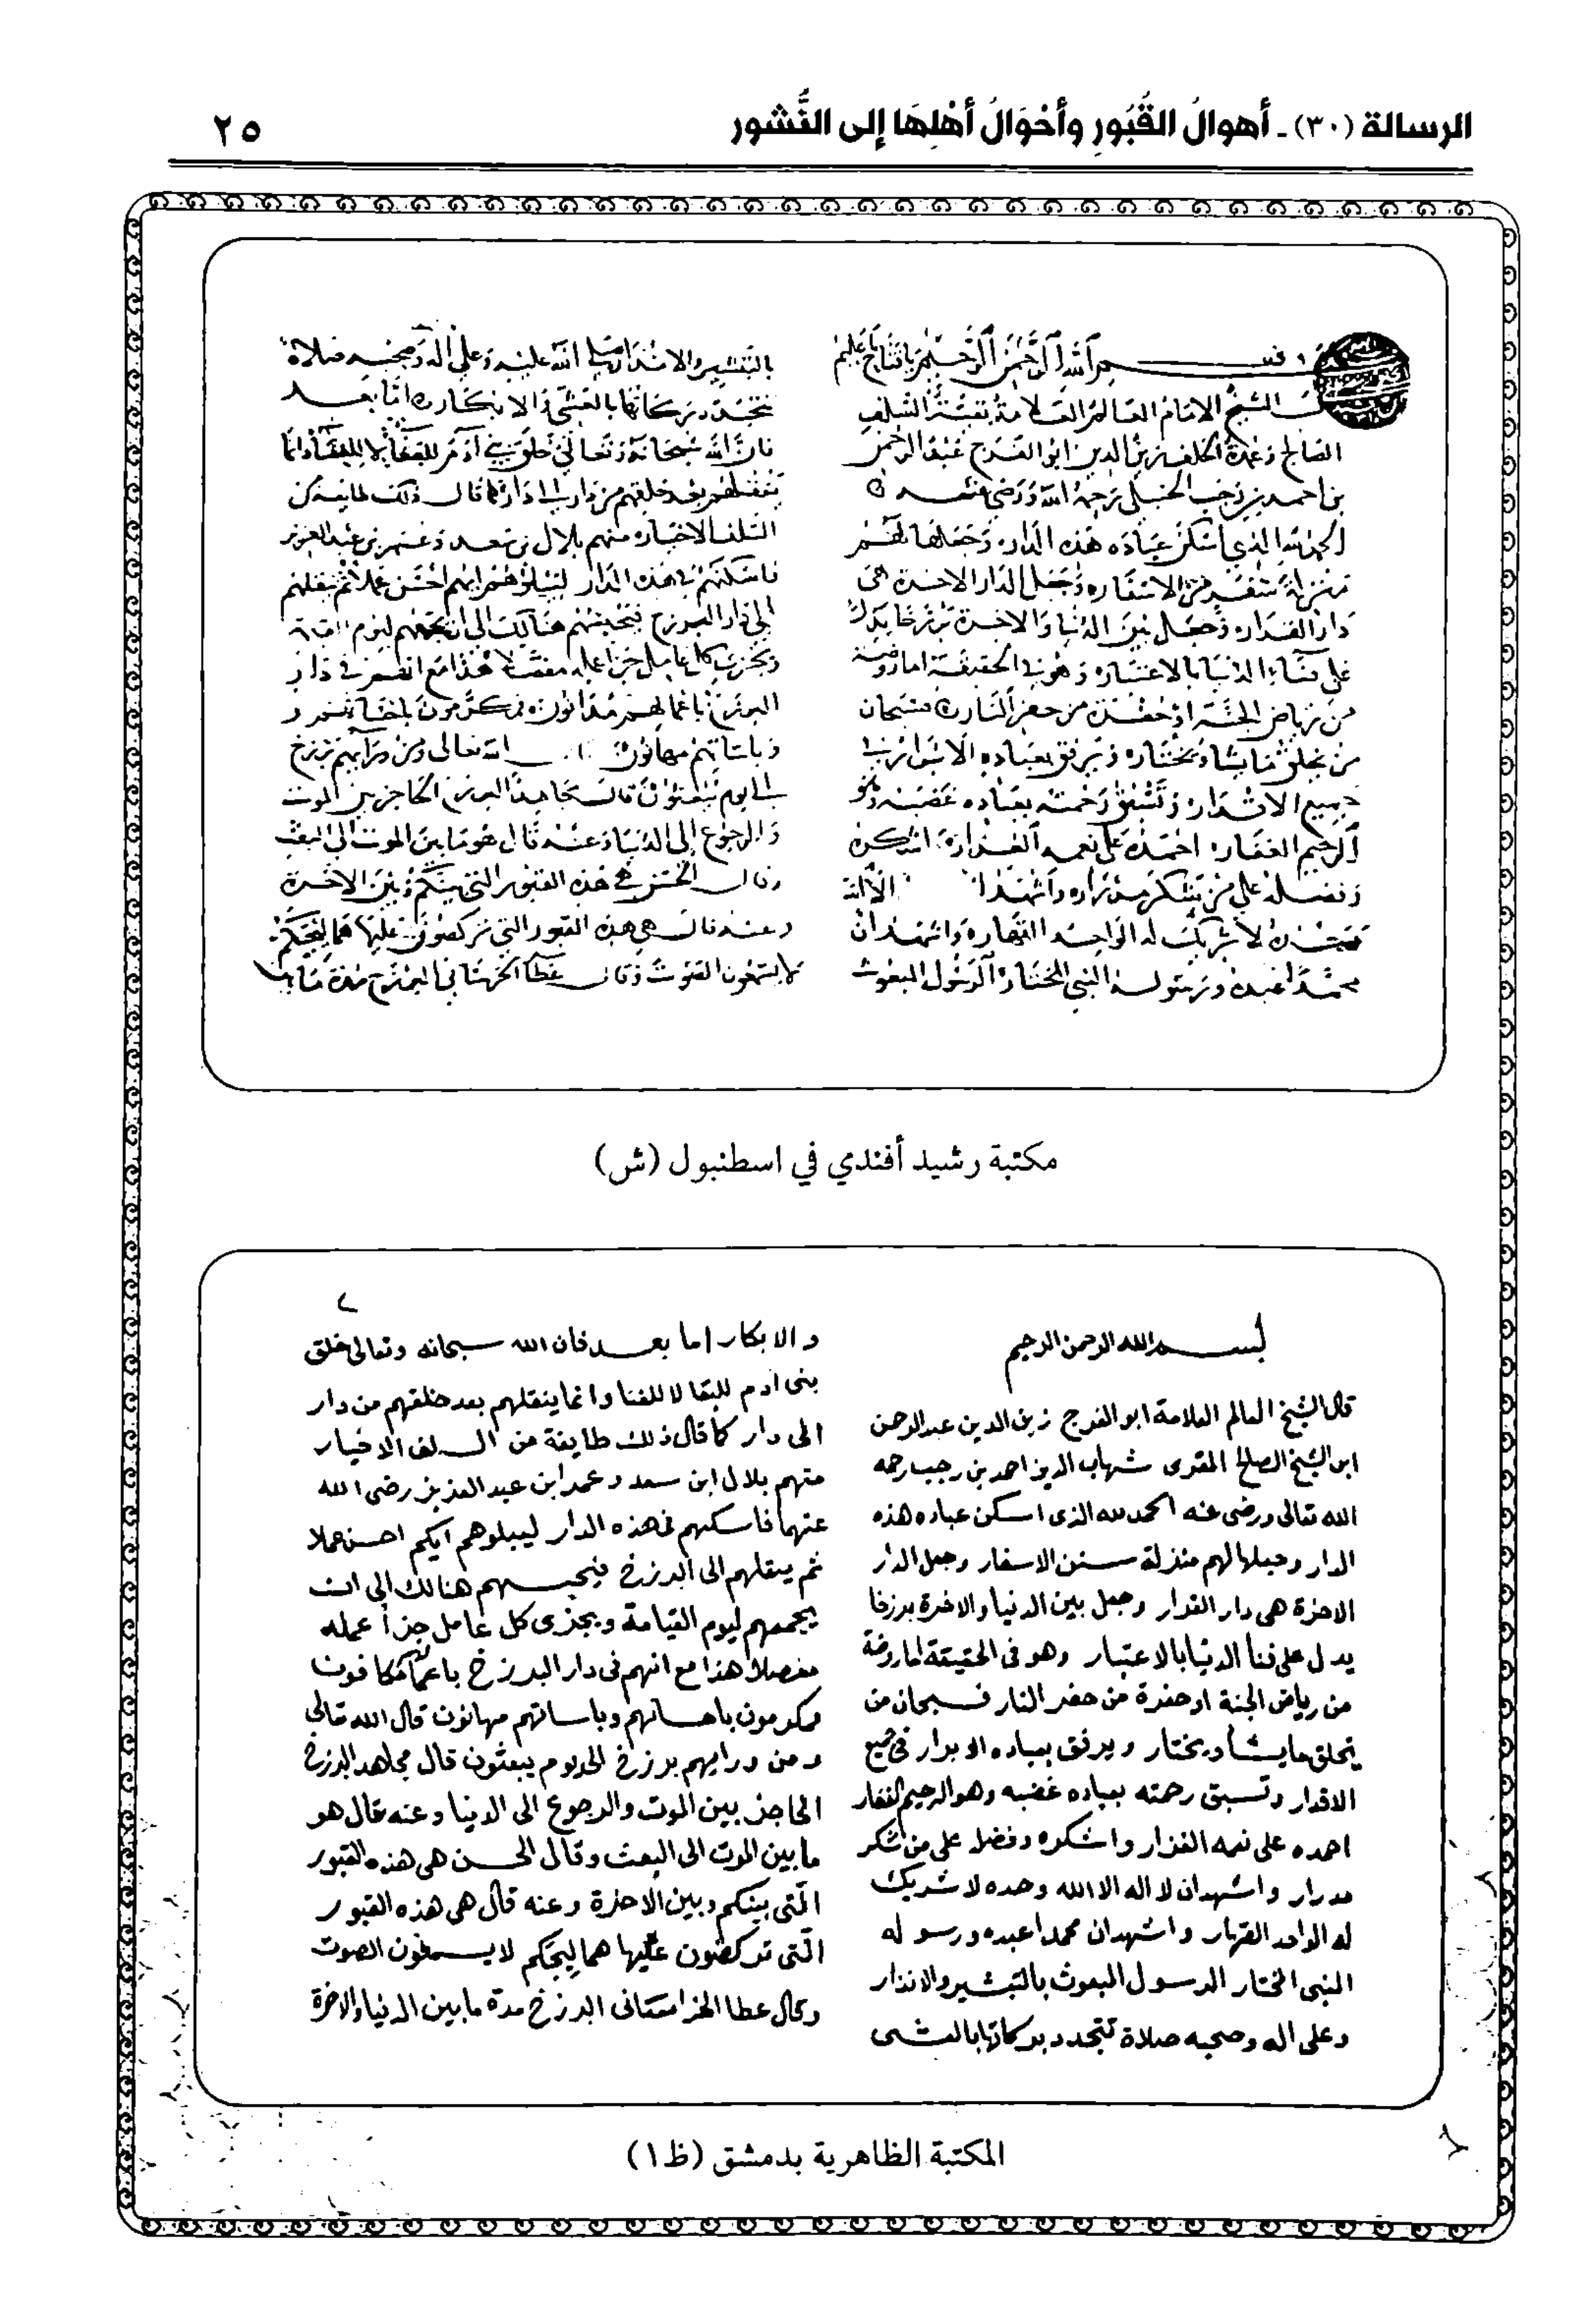 الرسالة (٣٠) ـ أهوالُ القُبُورِ وأحْوَالُ أهْلِهَا إلى النُّشور
٢٥
بسم الله الرحمن الرحيم
الشيخ الامام العالم العلامة بقية السلف
الصالح وعمدة الخلف زين الدين ابو الفرج عبد الرحمن
بن احمد بن رجب الحنبلي رحمه الله ورضي عنه
الحمد لله الذي اسكن عباده هذه الدار وجعلها لهم
منزلة سفر من الاسفار وجعل الدار الاخرة هي
دار القرار وجعل بين الدنيا والاخرة برزخا يدل
على فناء الدنيا بالاعتبار وهو في الحقيقة اما روضة
من رياض الجنة او حفرة من حفر النار فسبحان
من يخلق ما يشاء ويختار ويرفق بعباده الابرار في
جميع الاقدار وتسبق رحمته بعباده غضبه وهو
الرحيم الغفار احمده على نعمه الغزار واشكره
وفضله على من شكر مدرار واشهد ان الا الله
وحده لا شريك له الواحد القهار واشهد ان
محمدا عبده ورسوله النبي المختار الرسول المبعوث
بالتبشير والانذار صلى الله عليه وعلى اله وصحبه صلاة
تتجدد بركاتها بالعشي والابكار اما بعد
فان الله سبحانه وتعالى خلق بني آدم للبقاء لا للفناء وانما
ينقلهم بعد خلقهم من دار الى دار كما قال ذلك طائفة من
السلف الاخيار منهم بلال بن سعد وعمر بن عبد العزيز
فاسكنهم في هذه الدار ليبلوهم ايهم احسن عملا ثم ينقلهم
الى دار البرزخ فيحبسهم هنالك الى ان يجمعهم ليوم القيامة
ويجزي كل عامل جزاء عمله مفصلا هذا مع انهم في دار
البرزخ باعمالهم مدانون فمكرمون باحسانهم
وباساتهم مهانون الله تعالى ومن ورائهم برزخ
الى يوم يبعثون قال مجاهد البرزخ الحاجز بين الموت
والرجوع الى الدنيا وعنه قال هو ما بين الموت الى البعث
وقال الحسن هي هذه القبور التي بينكم وبين الاخرة
وعنه قال هي هذه القبور التي تركضون عليها
لا يسمعون الصوت وقال عطا الخرساني البرزخ مدة ما بين
مكتبة رشيد أفندي في اسطنبول (ش)
بسم الله الرحمن الرحيم
قال الشيخ العالم العلامة ابو الفرج زين الدين عبد الرحمن
ابن الشيخ الصالح المقرى شهاب الدين احمد بن رجب رحمه
الله تعالى ورضى عنه الحمد لله الذى اسكن عباده هذه
الدار وجعلها لهم منزلة سفر من الاسفار وجعل الدار
الاخرة هى دار القرار وجعل بين الدنيا والاخرة برزخا
يدل على فنا الدنيا بالاعتبار وهو فى الحقيقة اما روضة
من رياض الجنة او حفرة من حفر النار فسبحان من
يخلق ما يشا ويختار ويرفق بعباده الابرار فى جميع
الاقدار وتسبق رحمته بعباده غضبه وهو الرحيم الغفار
احمده على نعمه الغزار واشكره وفضل على من شكر
مدرار واشهد ان لا اله الا الله وحده لا شريك
له الواحد القهار واشهد ان محمدا عبده ورسوله
النبى المختار الرسول المبعوث بالتبشير والانذار
وعلى اله وصحبه صلاة تتجدد بركاتها بالعشى
والابكار اما بعد فان الله سبحانه وتعالى خلق
بنى ادم للبقا لا للفنا وانما ينقلهم بعد خلقهم من دار
الى دار كما قال ذلك طايفة من السلف الاخيار
منهم بلال ابن سعد وعمر ابن عبد العزيز رضى الله
عنهما فاسكنهم فى هذه الدار ليبلوهم ايكم احسن عملا
ثم ينقلهم الى البرزخ فيحبسهم هنالك الى ان
يجمعهم ليوم القيامة ويجزى كل عامل جزا عمله
مفصلا هذا مع انهم فى دار البرزخ
مكرمون باحسانهم وباساتهم مهانون قال الله تعالى
ومن ورايهم برزخ الى يوم يبعثون قال مجاهد البرزخ
الحاجز بين الموت والرجوع الى الدنيا وعنه قال هو
ما بين الموت الى البعث وقال الحسن هى هذه القبور
التى بينكم وبين الاخرة وعنه قال هى هذه القبور
التى تركضون عليها لا يسمعون الصوت
وقال عطا الخراسانى البرزخ مدة ما بين الدنيا والاخرة
المكتبة الظاهرية بدمشق (ظ١)